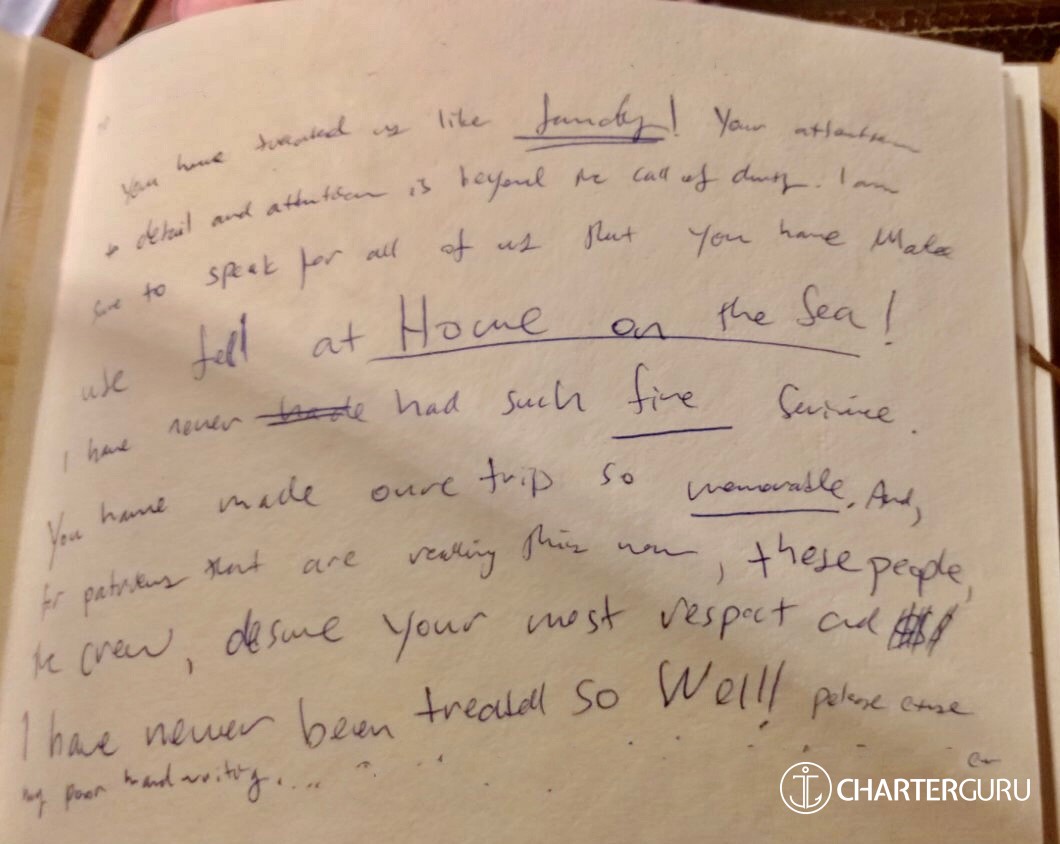 You have treated us like family! Your attention
to detail and attention is beyond the call of duty. I am
sure to speak for all of us that you have Make
use fell at Home on the Sea!
I have never had such fine Servive.
You have made oure trip so memorable. And,
for patrons that are reading this now, these people,
the crew, desirve your most respect and $$$
I have never been treated so Well! please
my poor handwriting....
CHARTERGURU